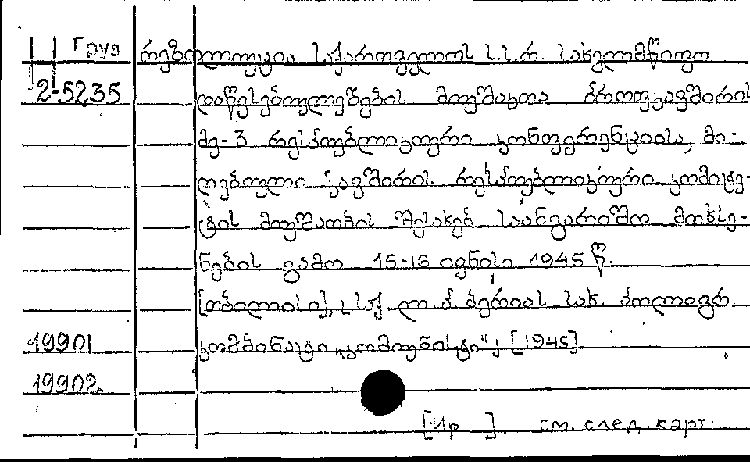 Груз რეზოლუცია საქართველოს ს.ს.რ. სახელმწიფო
2-5235 დაწესებულებების მოუშაკთა პროფკავშირის
მე-3 რესპუბლიკური კონფერენციისა, მი-
ღებული კავშირის რესპუბლიკური კომიტე-
ტის მუშაობის შესახებ საანგარიშო მოხსე-
ნების გამო 15-18 ივნისი 1945 წ.
[თბილისი], საქ. ლ. პ. ბერიას სახ. პოლიგრ
19901 კომბინატი „კომუნისტი“, [1945]
19902
[Ир ] см. след. карт.